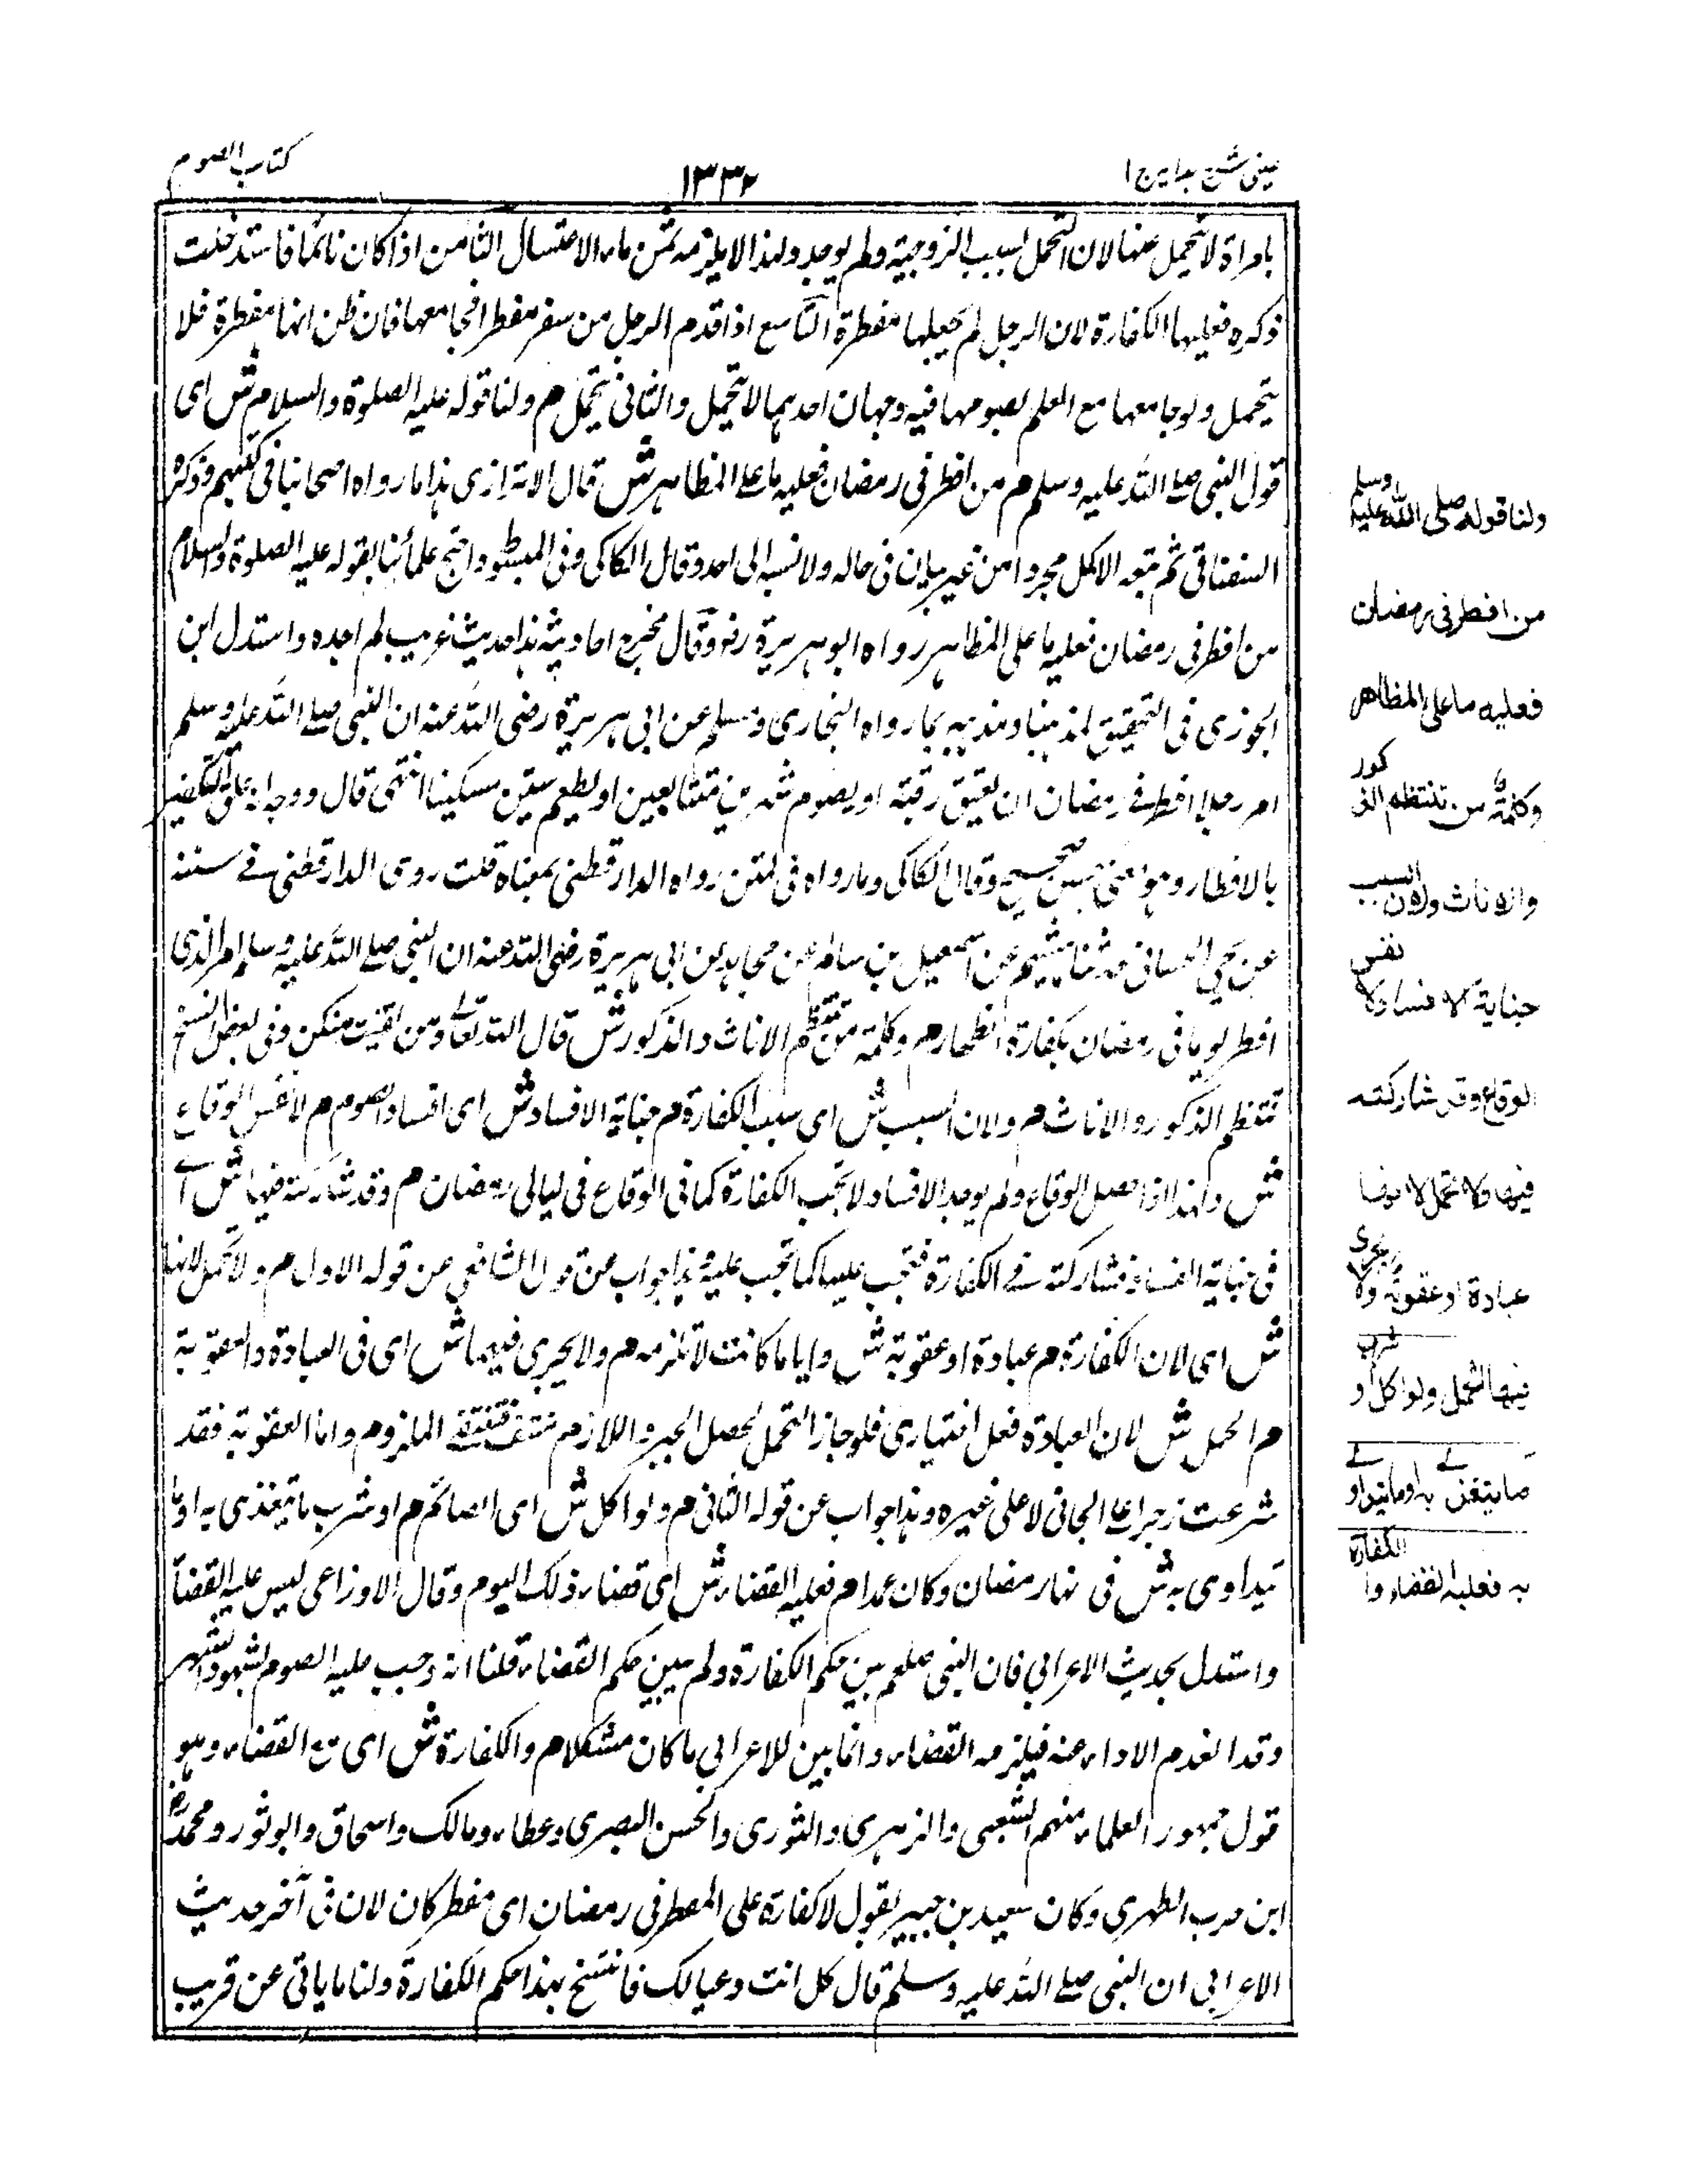 عينى شرح هدايه ج ا
١٣٣٢
كتاب الصوم
بامراة لا يتحمل عنها لان التحمل بسبب الزوجية ولم يوجد ولهذا لا يلزمه ثمن ماء الاغتسال الثامن اذا كان نائما فاستدخلت
ذكره فعليها الكفارة لان الرجل لم يجعلها مفطرة التاسع اذا قدم الرجل من سفر مفطرا فجامعها فان ظن انها مفطرة فلا
يتحمل ولو جامعها مع العلم بصومها ففيه وجهان احدهما لا يتحمل والثانى يتحمل م ولنا قوله عليه الصلوة والسلام ش اى
قول النبى صلے الله عليه وسلم م من افطر فى رمضان فعليه ما على المظاهر ش قال الاترازى هذا ما رواه اصحابنا فى كتبهم وذكره
السغناقى ثم تبعه الاكمل مجردا من غير بيان فى حاله ولا نسبه الى احد وقال الكاكى وفى المبسوط واحتج علمائنا بقوله عليه الصلوة والسلام
من افطر فى رمضان فعليه ما على المظاهر رواه ابو هريرة رض وقال مخرج احاديثه هذا حديث غريب لم اجده واستدل ابن
الجوزى فى التحقيق لمذهبنا ومذهبه بما رواه البخارى ومسلم عن ابى هريرة رضى الله عنه ان النبى صلے الله عليه وسلم
امر رجلا افطر فے رمضان ان يعتق رقبة او يصوم شهرين متتابعين او يطعم ستين مسكينا انتهى قال ووجه انه علق التكفير
بالافطار وهو معنى صحيح وقال الكاكى وما رواه فى المتن رواه الدارقطنى بمعناه قلت روى الدارقطنى فے سننه
عن يحيى الحمانى حدثنا هشيم عن اسمعيل بن سالم عن مجاهد عن ابى هريرة رضى الله عنه ان النبى صلے الله عليه وسلم امر الذى
افطر يوما فى رمضان بكفارة الظهار م وكلمة من تنتظم الاناث والذكور ش قال الله تعالے ومن يقنت منكن وفى بعض النسخ
تنتظم الذكور والاناث م ولان السبب ش اى سبب الكفارة م جناية الافساد ش اى افساد الصوم م لا نفس الوقاع
ش ولهذا اذا حصل الوقاع ولم يوجد الافساد لا تجب الكفارة كما فى الوقاع فى ليالى رمضان م وقد شاركته فيها ش اے
فى جناية الفساد فشاركته فے الكفارة فتجب عليها كما تجب عليه وهذا جواب عن قول الشافعى عن قوله الاول م ولا تحمل لانها
ش اى لان الكفارة م عبادة او عقوبة ش وايا ما كانت لا تلزمه م ولا يجرى فيهما ش اى فى العبادة والعقوبة
م الحمل ش لان العبادة فعل اختيارى فلو جاز التحمل لحصل الجبر واللازم منتف فينتفے الملزوم واما العقوبة فقد
شرعت زجرا على الجانى لا على غيره وهذا جواب عن قوله الثانى م ولو اكل ش اى الصائم م او شرب ما يتغذى به او ما
يتداوى به ش فى نهار رمضان وكان عمدا م فعليه القضاء ش اى قضاء ذلك اليوم وقال الاوزاعى ليس عليه القضاء
واستدل بحديث الاعرابى فان النبى صلعم بين حكم الكفارة ولم يبين حكم القضاء قلنا انه وجب عليه الصوم لشهود الشهر
وقد انعدم الاداء عنه فيلزمه القضاء وانما بين للاعرابى ما كان مشكلا م والكفارة ش اى مع القضاء وهو
قول جمهور العلماء منهم الشعبى والزهرى والثورى والحسن البصرى وعطاء ومالك واسحاق وابو ثور ومحمد
ابن جرير الطبرى وكان سعيد بن جبير يقول لا كفارة على المفطر فى رمضان اى مفطر كان لان فى آخر حديث
الاعرابى ان النبى صلے الله عليه وسلم قال كل انت وعيالك فانتسخ بهذا حكم الكفارة ولنا ما ياتى عن قريب
ولنا قوله صلى الله عليه وسلم
من افطر فى رمضان
فعليه ما على المظاهر
وكلمة من تنتظم الذكور
والاناث ولان السبب
جناية الافساد لا نفس
الوقاع وقد شاركته
فيها ولا تحمل لانها
عبادة او عقوبة ولا يجرى
فيها التحمل ولو اكل او شرب
ما يتغذى به او ما يتداوى
به فعليه القضاء والكفارة